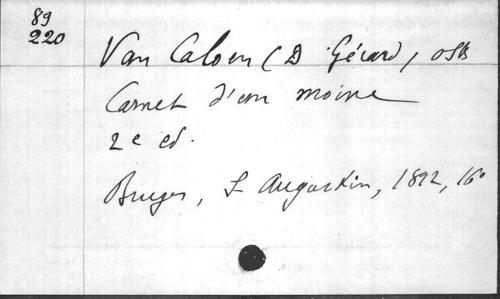 89
220
Van Caloen (D Gérard) OSB
Carnet d'un moine
2e ed.
Bruges, S Augustin, 1892, 16°